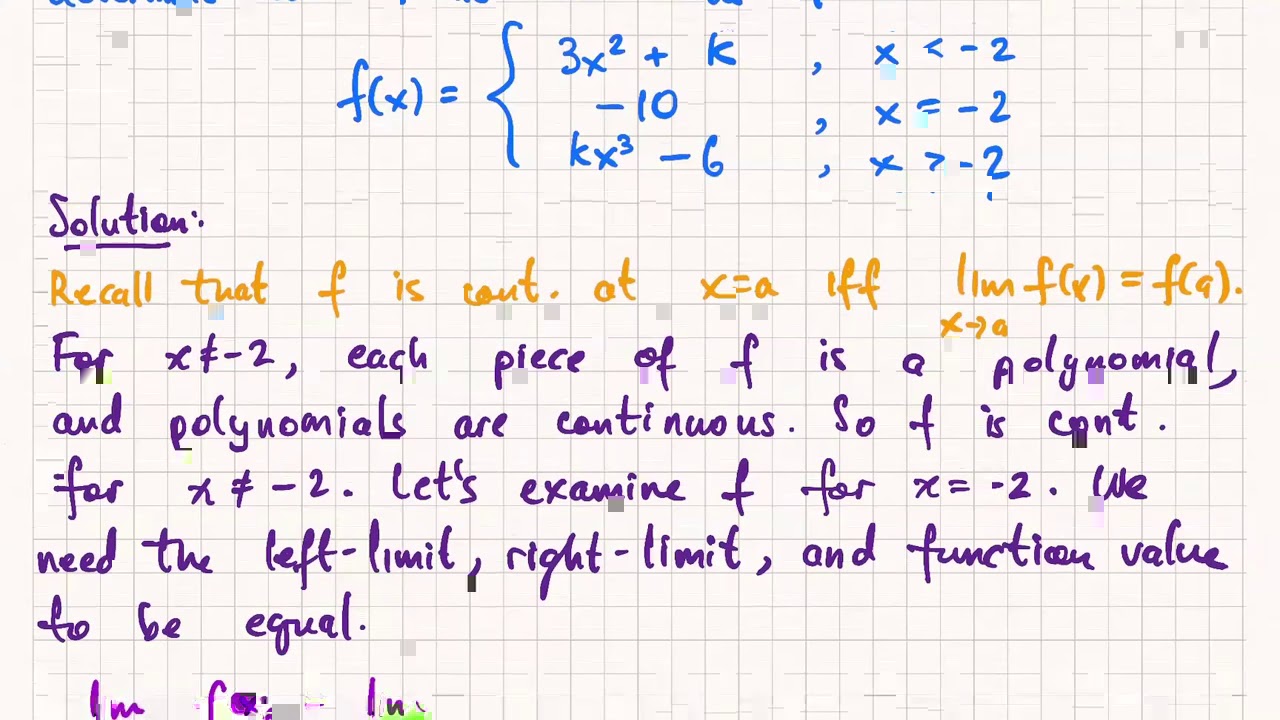 f(x) = { 3x² + k , x < -2
-10 , x = -2
kx³ - 6 , x > -2
Solution:
Recall that f is cont. at x=a iff lim f(x) = f(a).
x→a
For x≠-2, each piece of f is a polynomial,
and polynomials are continuous. So f is cont.
for x ≠ -2. Let's examine f for x = -2. We
need the left-limit, right-limit, and function value
to be equal.
lim